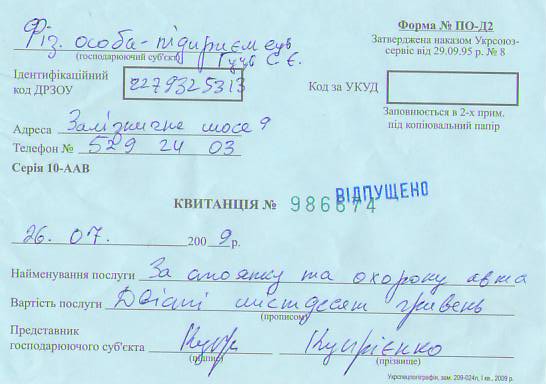 Форма № ПО-Д2
Затверджена наказом Укрсоюз-
сервіс від 29.09.95 р. № 8
Фіз. особа-підприємець
(господарюючий суб'єкт)
С.Є.
Ідентифікаційний
код ДРЗОУ 2279325313
Код за УКУД
Заповнюється в 2-х прим.
під копіювальний папір
Адреса Залізничне шосе 9
Телефон № 529 24 03
Серія 10-ААВ
КВИТАНЦІЯ № 986674
ВІДПУЩЕНО
26. 07. 2009 р.
Найменування послуги За стоянку та охорону авто
Вартість послуги Двісті шістдесят гривень
(прописом)
Представник
господарюючого суб'єкта Купрієнко
(підпис) (прізвище)
Укрспецполіграфія, зам. 209-024п, І кв., 2009 р.